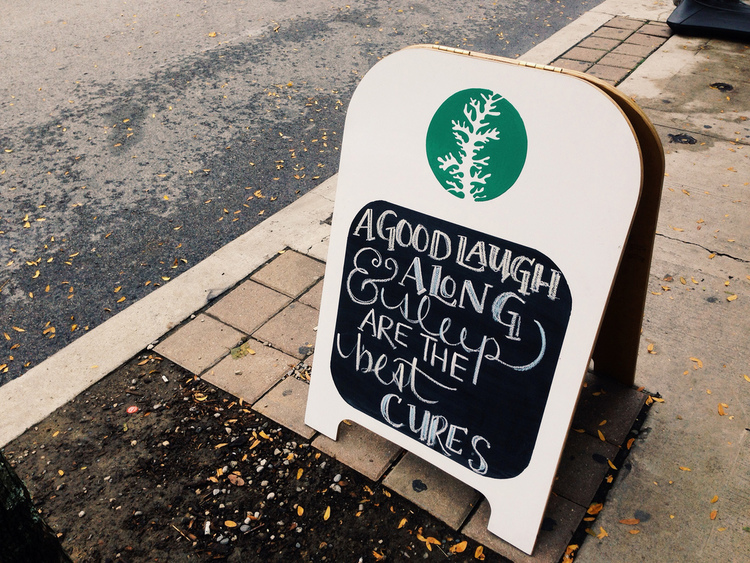 A GOOD LAUGH
& A LONG
sleep
ARE THE
best
CURES